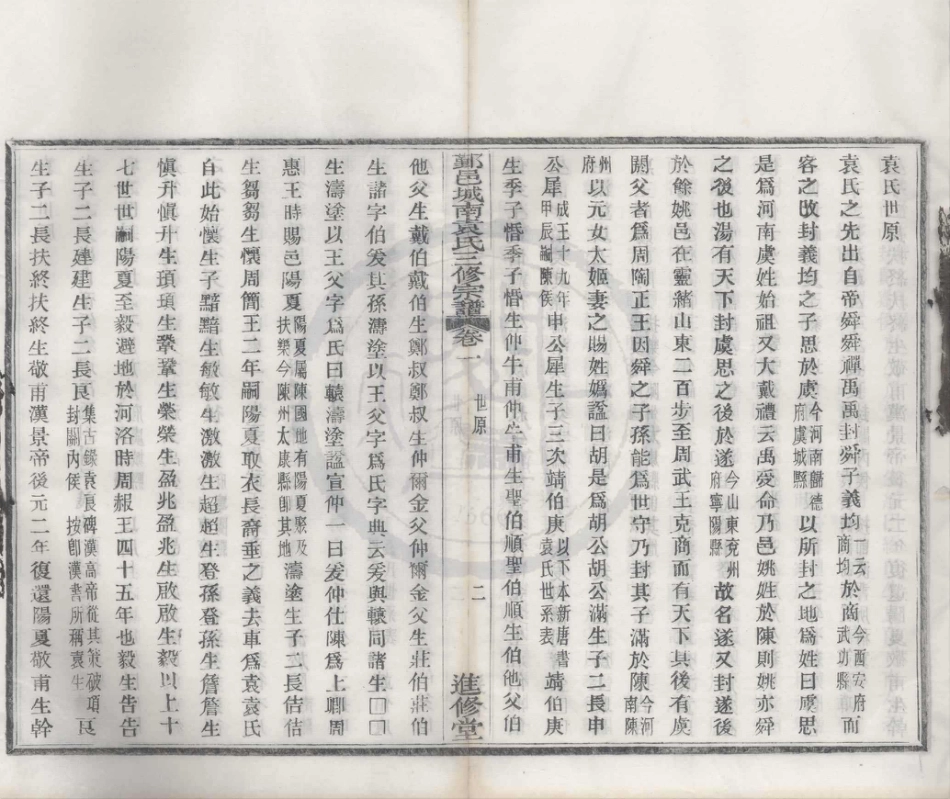 袁氏世原
袁氏之先出自帝舜舜禪禹禹封舜子義均一云商均於商今西安府武功縣而
客之改封義均之子思於虞今河南歸德府虞城縣以所封之地爲姓曰虞思
是爲河南虞姓始祖又大戴禮云禹受命乃邑姚姓於陳則姚亦舜
之後也湯有天下封虞思之後於遂今山東兗州府寧陽縣故名遂又封遂後
於餘姚邑在靈緒山東二百步至周武王克商而有天下其後有虞
閼父者爲周陶正王因舜之子孫能爲世守乃封其子滿於陳今河南陳
州府以元女太姬妻之賜姓嬀諡曰胡是爲胡公胡公滿生子二長申
公犀成王十九年甲辰嗣陳侯申公犀生子三次靖伯庚以下本新唐書袁氏世系表靖伯庚
生季子惛季子惛生仲牛甫仲牛甫生聖伯順聖伯順生伯他父伯
鄞邑城南袁氏三修宗譜
卷一
世原
二
進修堂
他父生戴伯戴伯生鄭叔鄭叔生仲爾金父仲爾金父生莊伯莊伯
生諸字伯爰其孫濤塗以王父字爲氏字典云爰與轅同諸生□□
生濤塗以王父字爲氏曰轅濤塗諡宣仲一曰爰仲仕陳爲上卿周
惠王時賜邑陽夏陽夏屬陳國地有陽夏聚及扶樂今陳州太康縣卽其地濤塗生子二長佶佶
生芻芻生懷周簡王二年嗣陽夏取衣長裔垂之義去車爲袁袁氏
自此始懷生子黯黯生敏敏生激激生超超生登孫登孫生詹詹生
愼升愼升生瑣瑣生鞏鞏生榮榮生盈兆盈兆生啟啟生毅以上十
七世世嗣陽夏至毅避地於河洛時周赧王四十五年也毅生告告
生子二長建建生子二長良集古錄袁良碑漢高帝從其策破項封關內侯　按卽漢書所稱袁生良
生子二長扶終扶終生敬甫漢景帝後元二年復還陽夏敬甫生幹